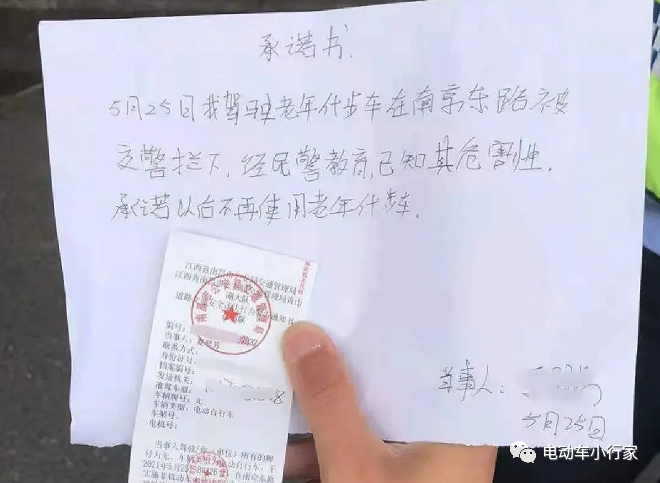 承诺书.
5月25日我驾驶老年代步车在南京东路被
交警拦下,经民警教育,已知其危害性.
承诺以后不再使用老年代步车.
江西省南昌市
道路
编号:
当事人:
联系方式:
身份证号:
档案编号:
发证机关:
准驾车型:
车辆牌号:无
车辆类型:电动自行车
车架号:
电机号:
当事人驾驶/你(单位)所有的牌
号为无、车辆
2021年5月25日
当事人:
5月25日
电动车小行家